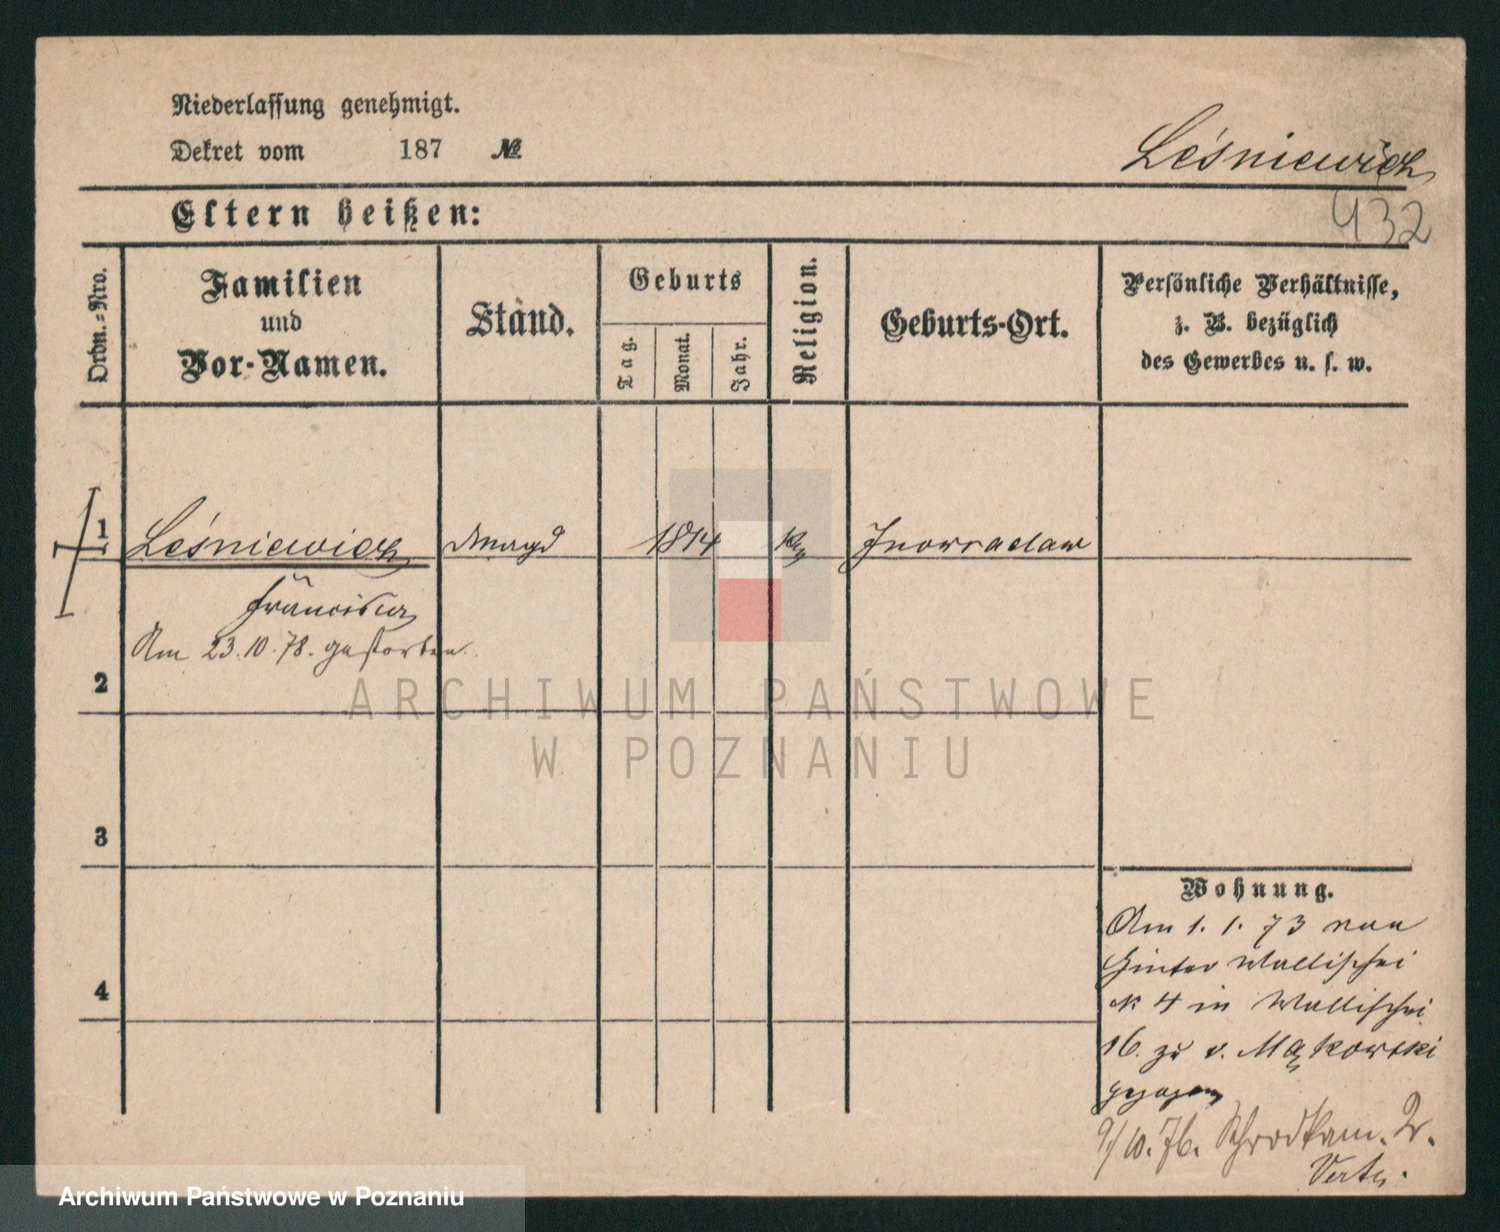 Niederlassung genehmigt.
Dekret vom 187 №
Leśniewicz
Eltern heißen:
432
Ordn.-Nro.
Familien
und
Vor-Namen.
Stand.
Geburts
Tag.
Monat.
Jahr.
Religion.
Geburts-Ort.
Persönliche Verhältnisse,
z. B. bezüglich
des Gewerbes u. s. w.
1
Leśniewicz Magd 1814 Inowraclaw
Franciska
Am 23.10.78. gestorben.
2
ARCHIWUM PAŃSTWOWE
W POZNANIU
3
Wohnung.
Am 1. 1. 73 von
Hinter Wallischei
№ 4 in Wallischei
16. zu v. Mąkowski
gezogen
4
9/10.76. Schrodkam. 2.
Archiwum Państwowe w Poznaniu